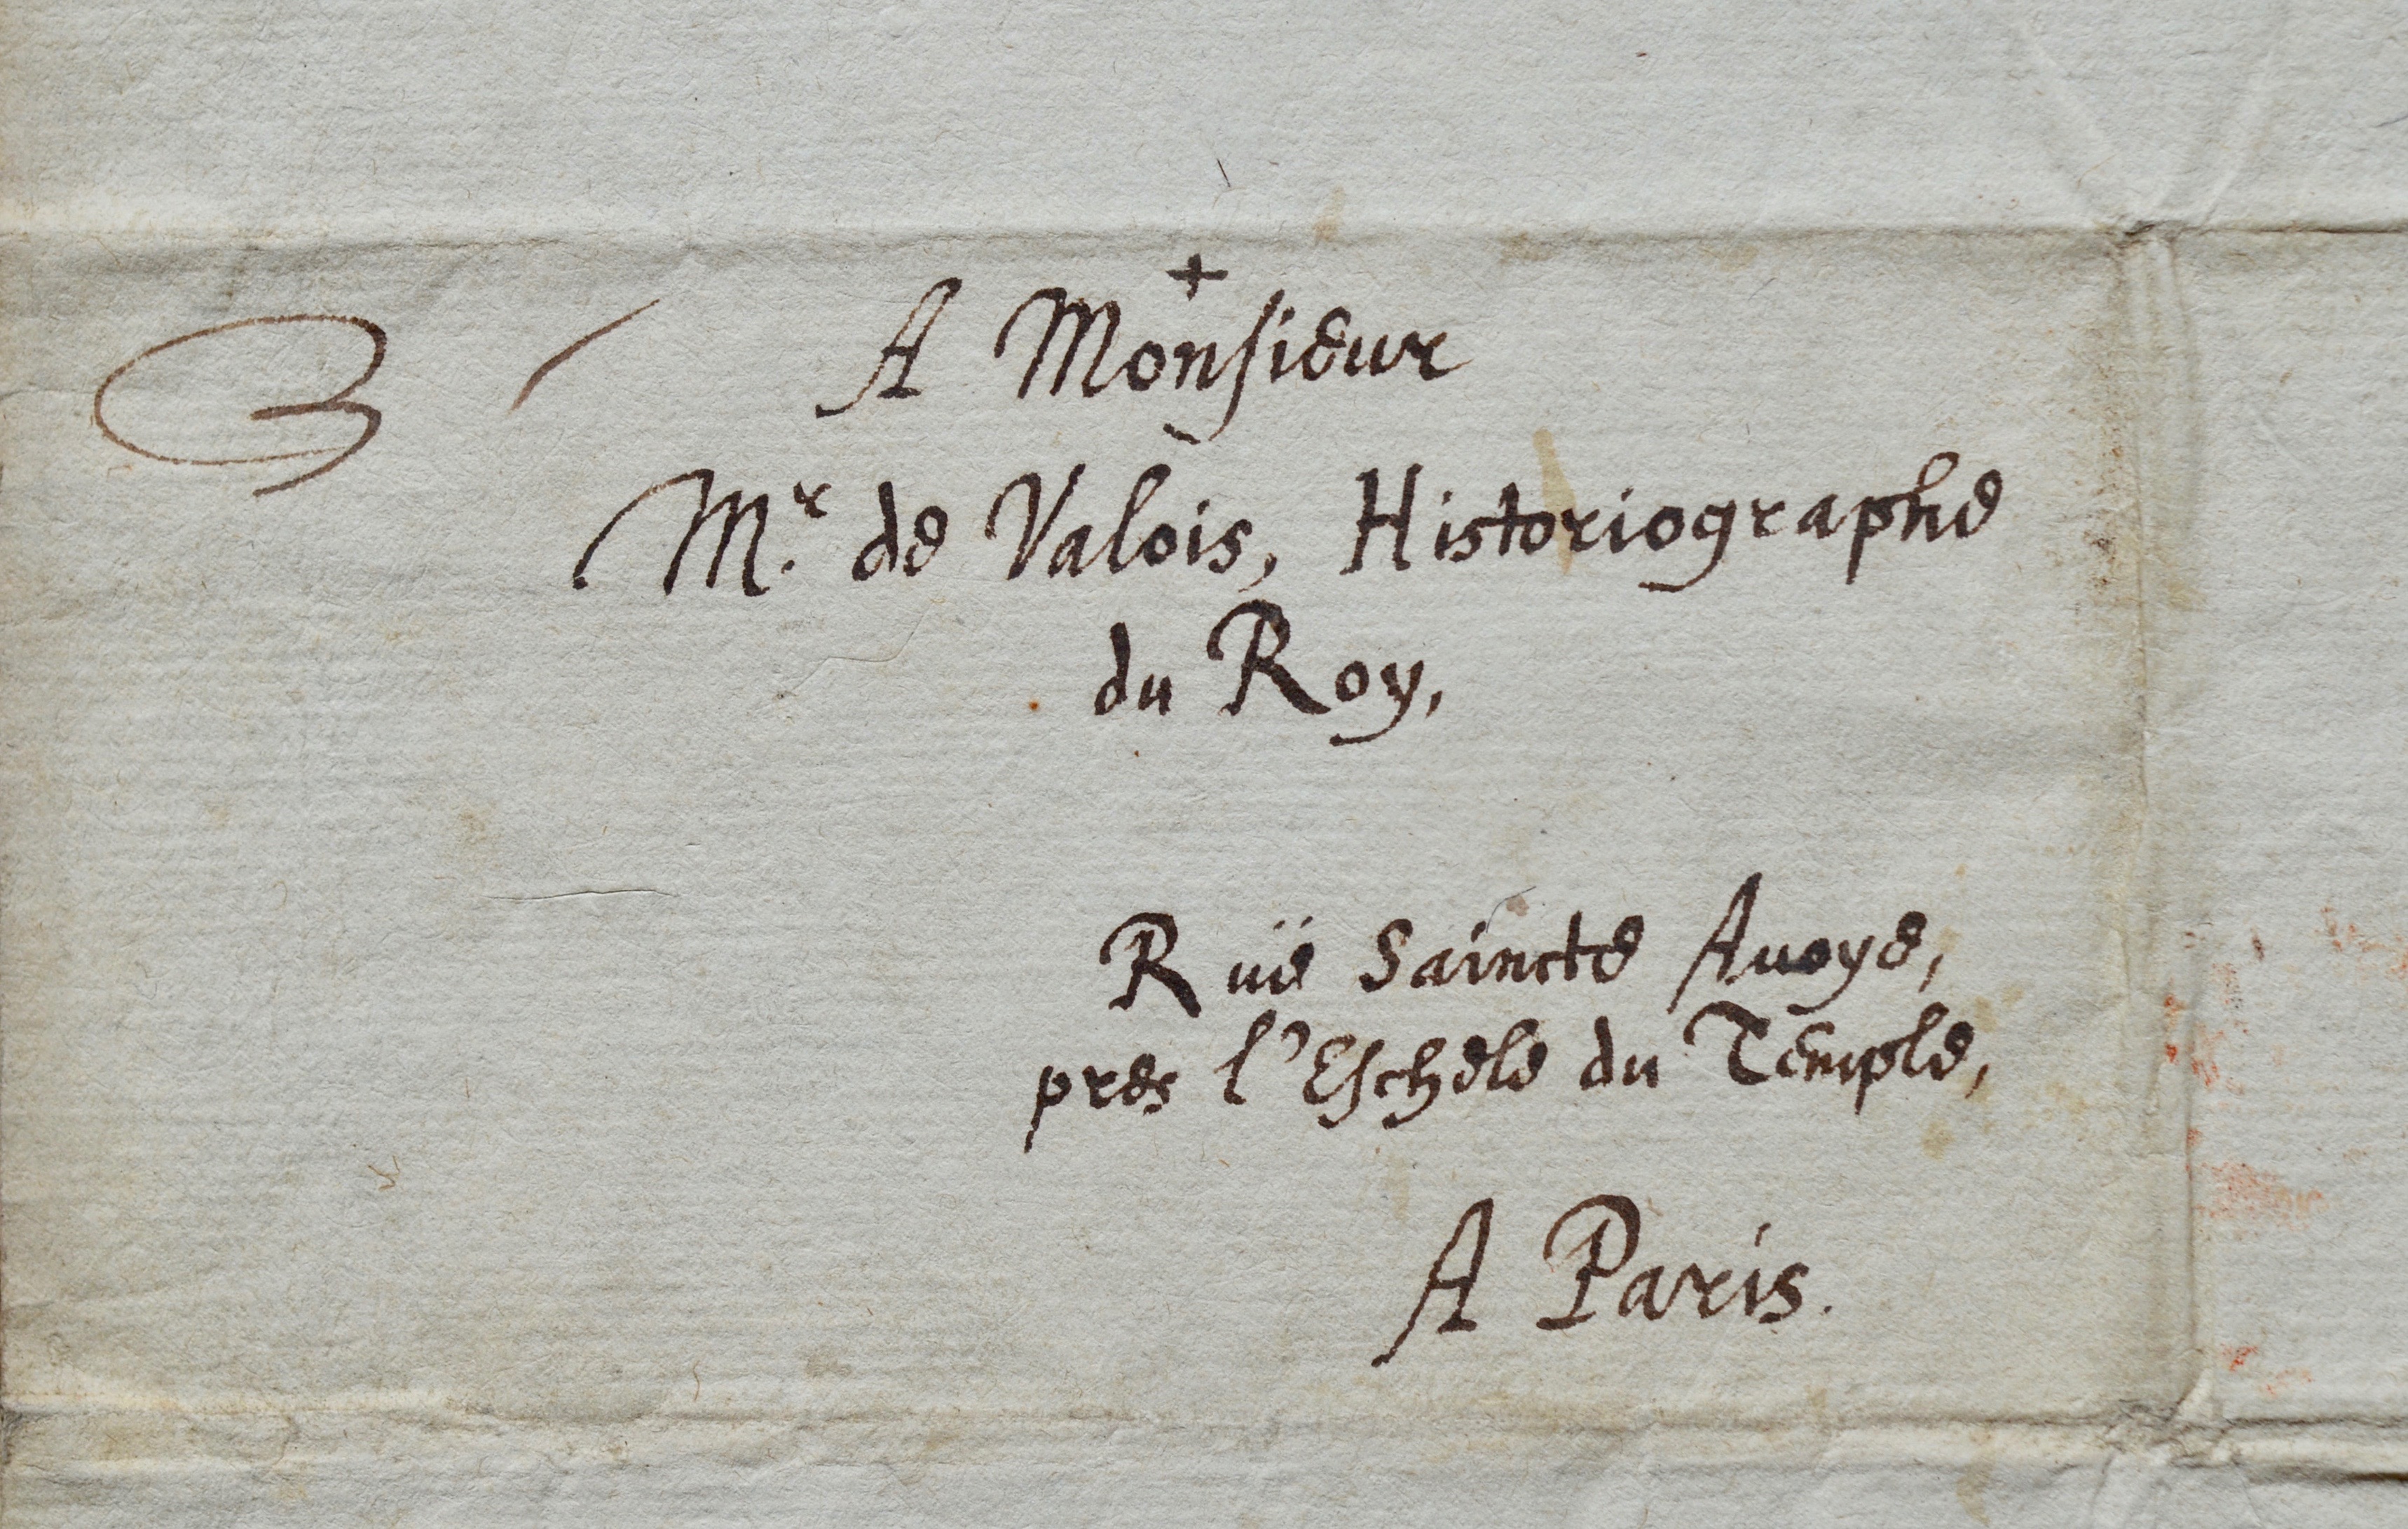 +
A Monsieur
Mr. de Valois, Historiographe
du Roy,
Ruë Saincte Auoye,
pres l'Eschele du Temple,
A Paris.